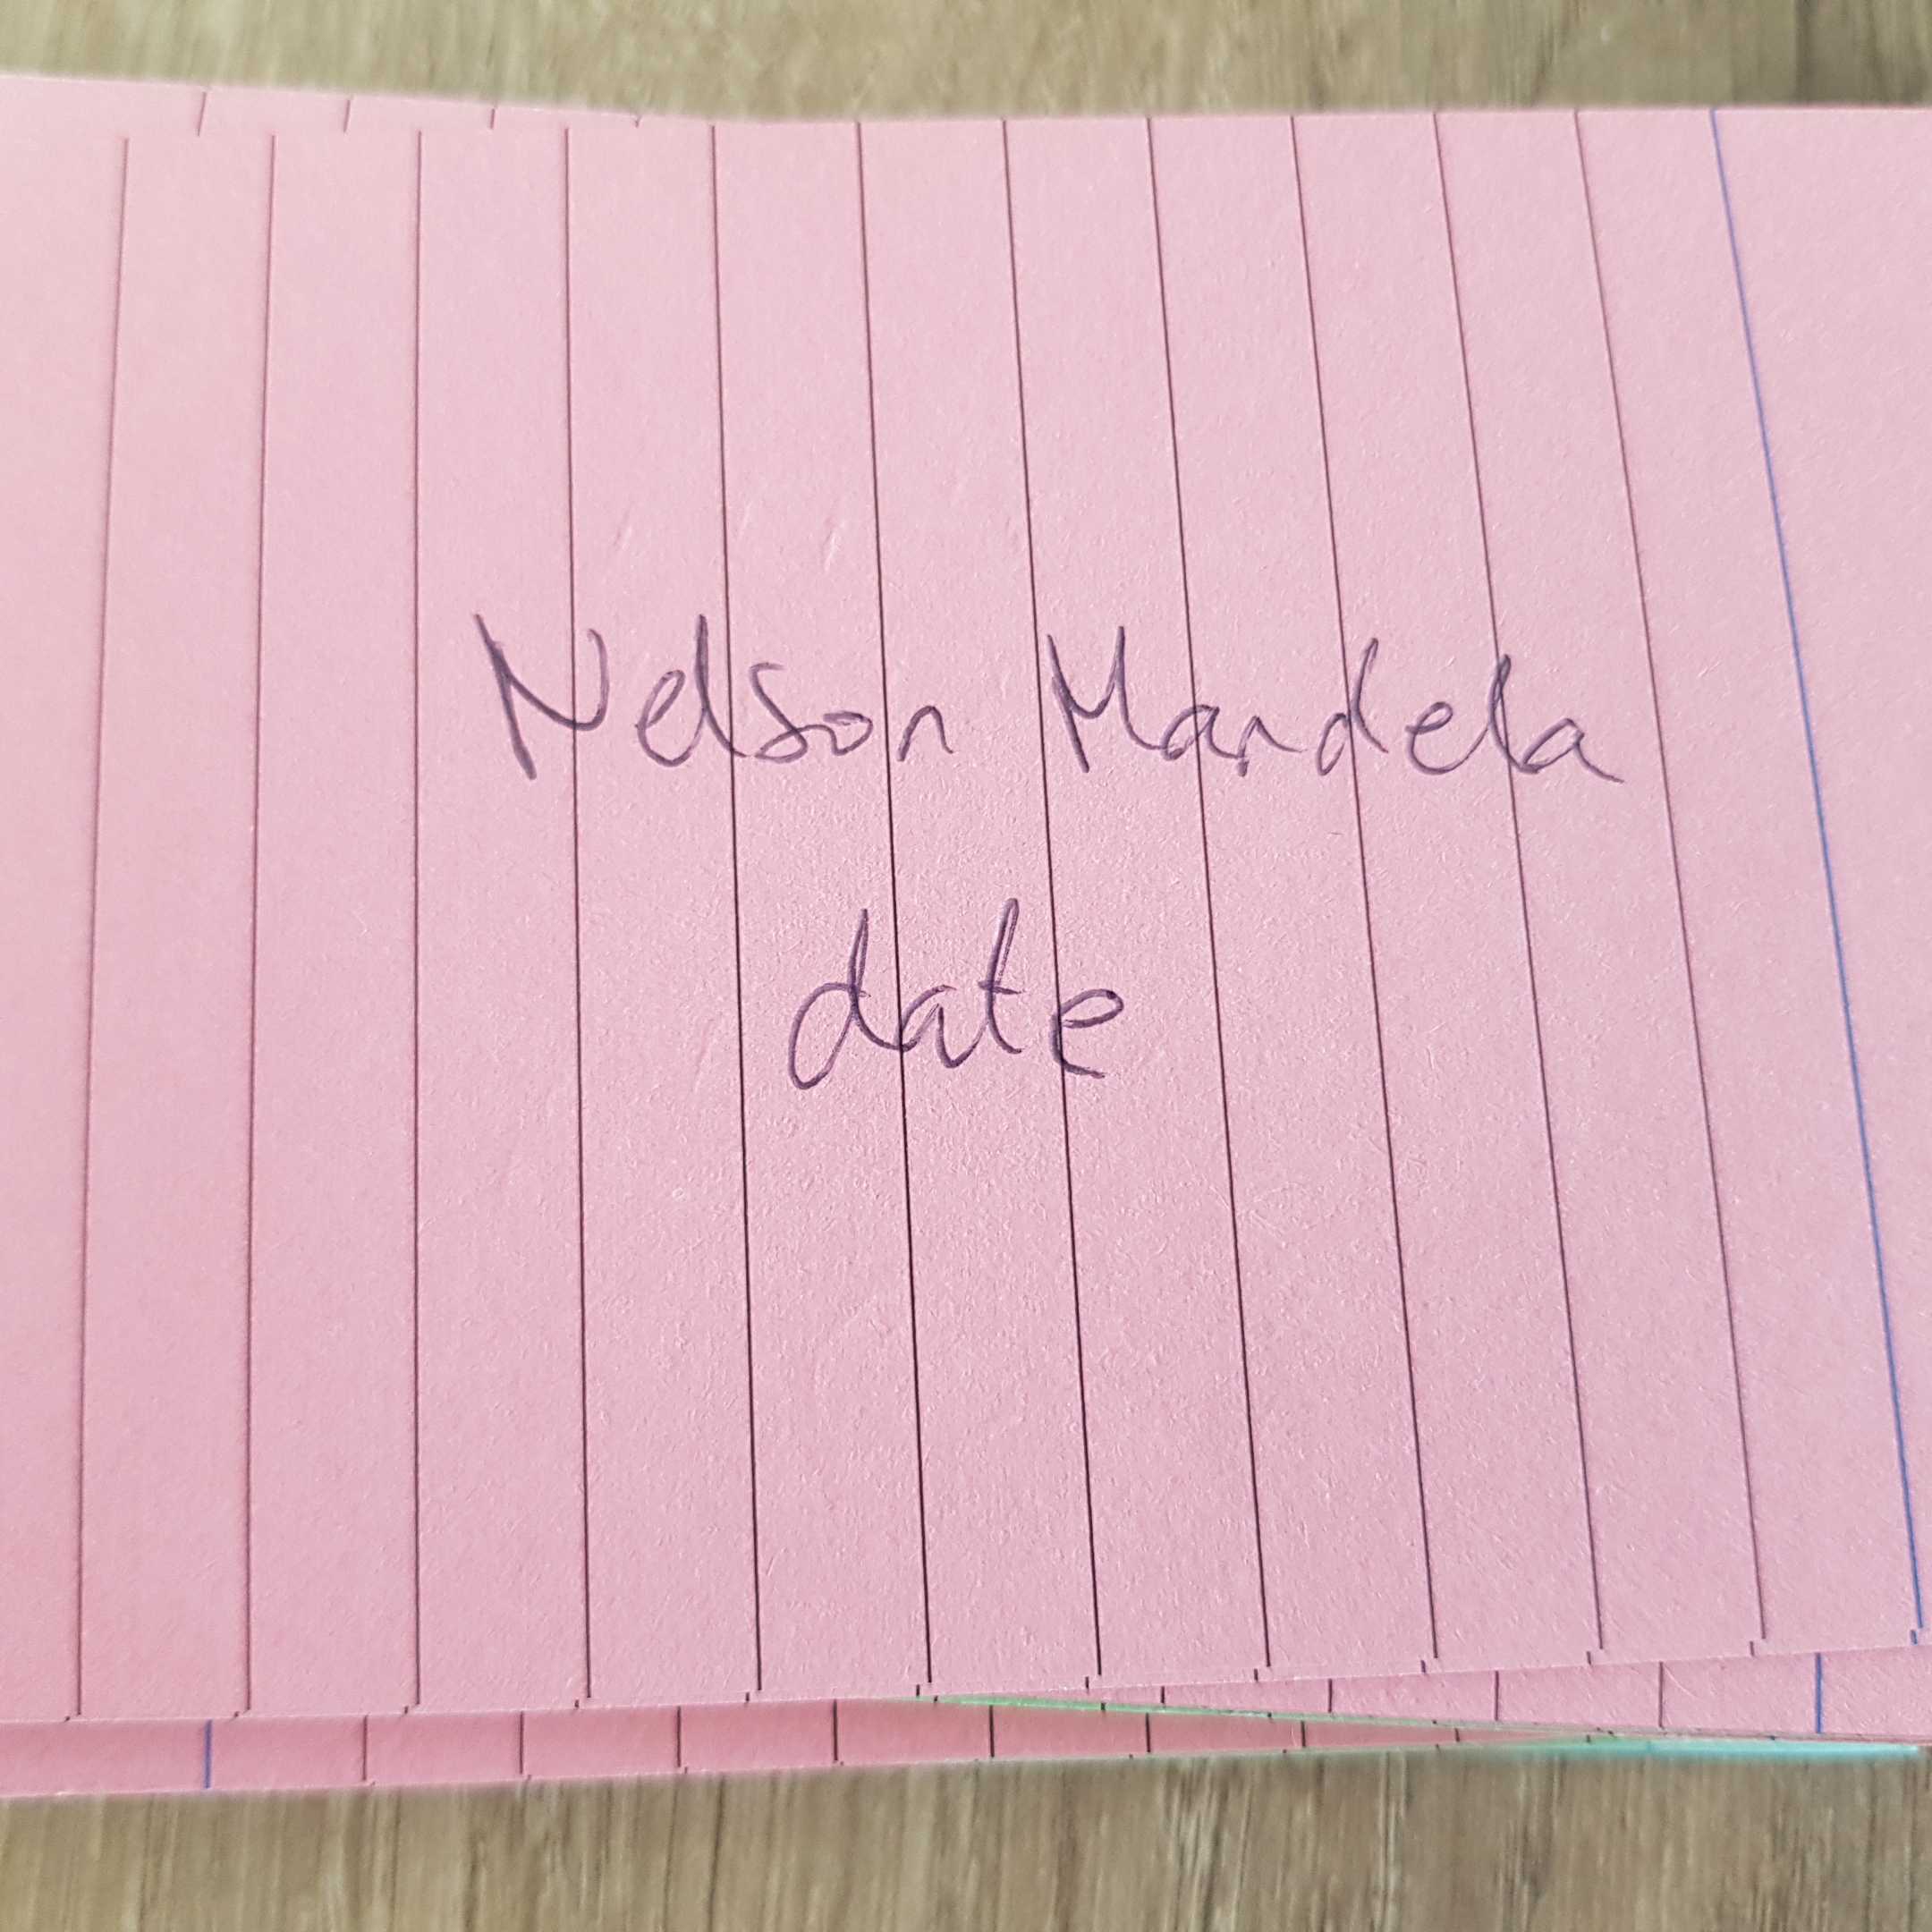 Nelson Mandela
date